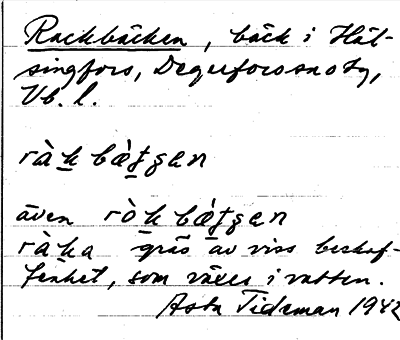 Rackbäcken, bäck i Häl-
singfors, Degerfors snotg,
Vb. l.
ràk bæ̀tʂən
även ròk bæ̀tʂən
ràka gräs av viss beskaf-
fenhet, som växer i vatten.
Asta Tideman 1942